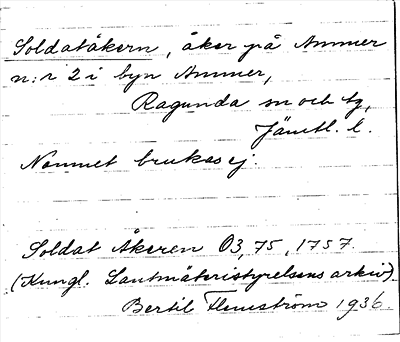 Soldatåkern, åker på Ammer
n:r 2 i byn Ammer,
Ragunda sn och tg,
Jämtl. l.
Namnet brukas ej.
Soldat Åkeren Ö3,75, 1757.
(Kungl. Lantmäteristyrelsens arkiv)
Bertil Flemström 1936